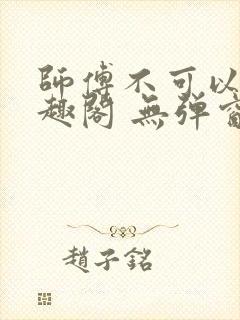 師傅不可以
趣閣 無弹窗
趙子銘